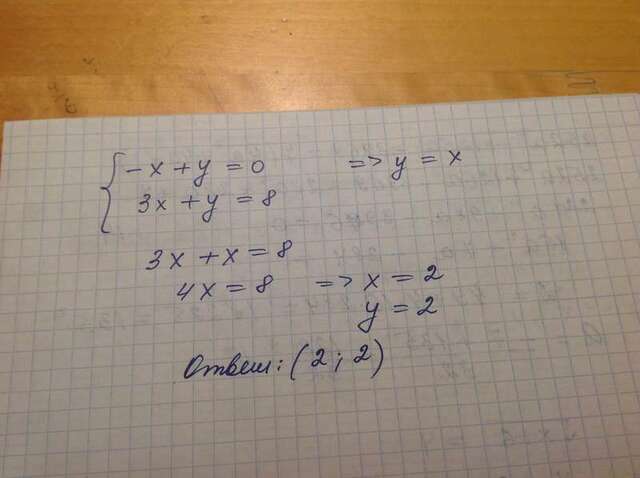 -x + y = 0 => y = x
3x + y = 8
3x + x = 8
4x = 8 => x = 2
y = 2
Ответ: (2; 2)